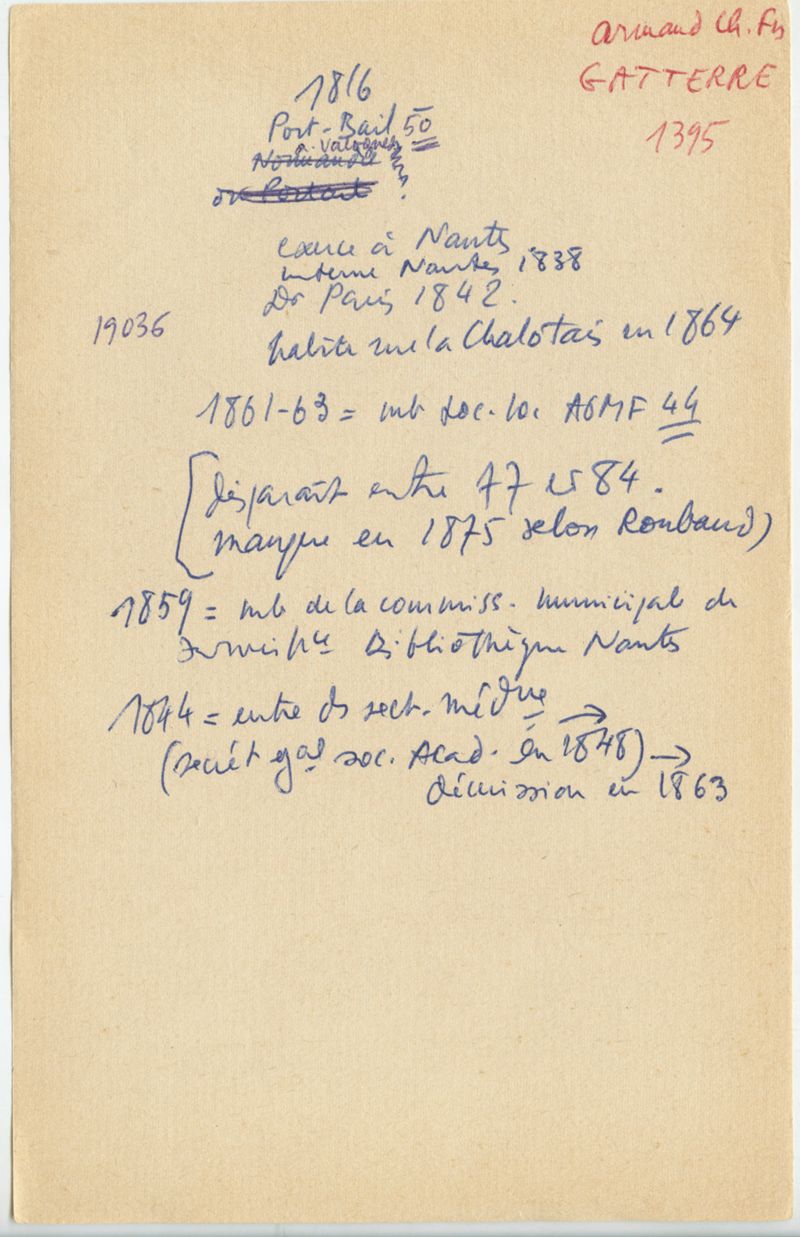 Armand Ch. Fs
GATTERRE
1395
1816
Port-Bail 50
a. Valognes
Normandie
ou Portait ?
exerce à Nantes
interne Nantes 1838
Dr Paris 1842.
19036
habite rue la Chalotais en 1864
1861-63 = mb Soc. loc AGMF 44
[disparaît entre 77 et 84.
manque en 1875 selon Roubaud)
1859 = mb de la commiss. municipale de
surveillce Bibliothèque Nantes
1844 = entre ds sect. médue →
(secrét gal soc. Acad. en 1848) →
démission en 1863